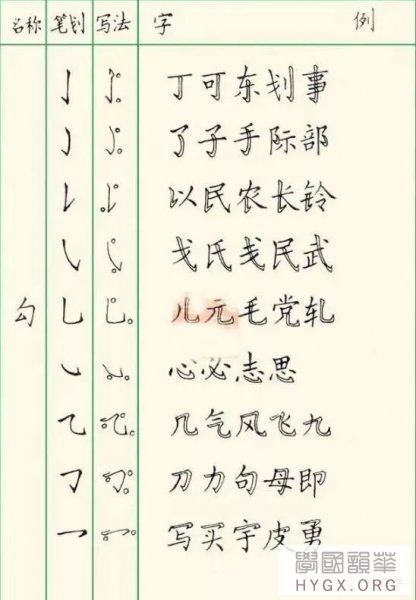 名称 笔划 写法 字 例
亅 丁可东划事
了子手际部
以民农长铃
戈氏戋民武
勾 乚 儿元毛党轧
心必志思
乁 几气风飞九
𠃌 刀力句母即
乛 写买字皮勇
學國韻華
HYGX.ORG